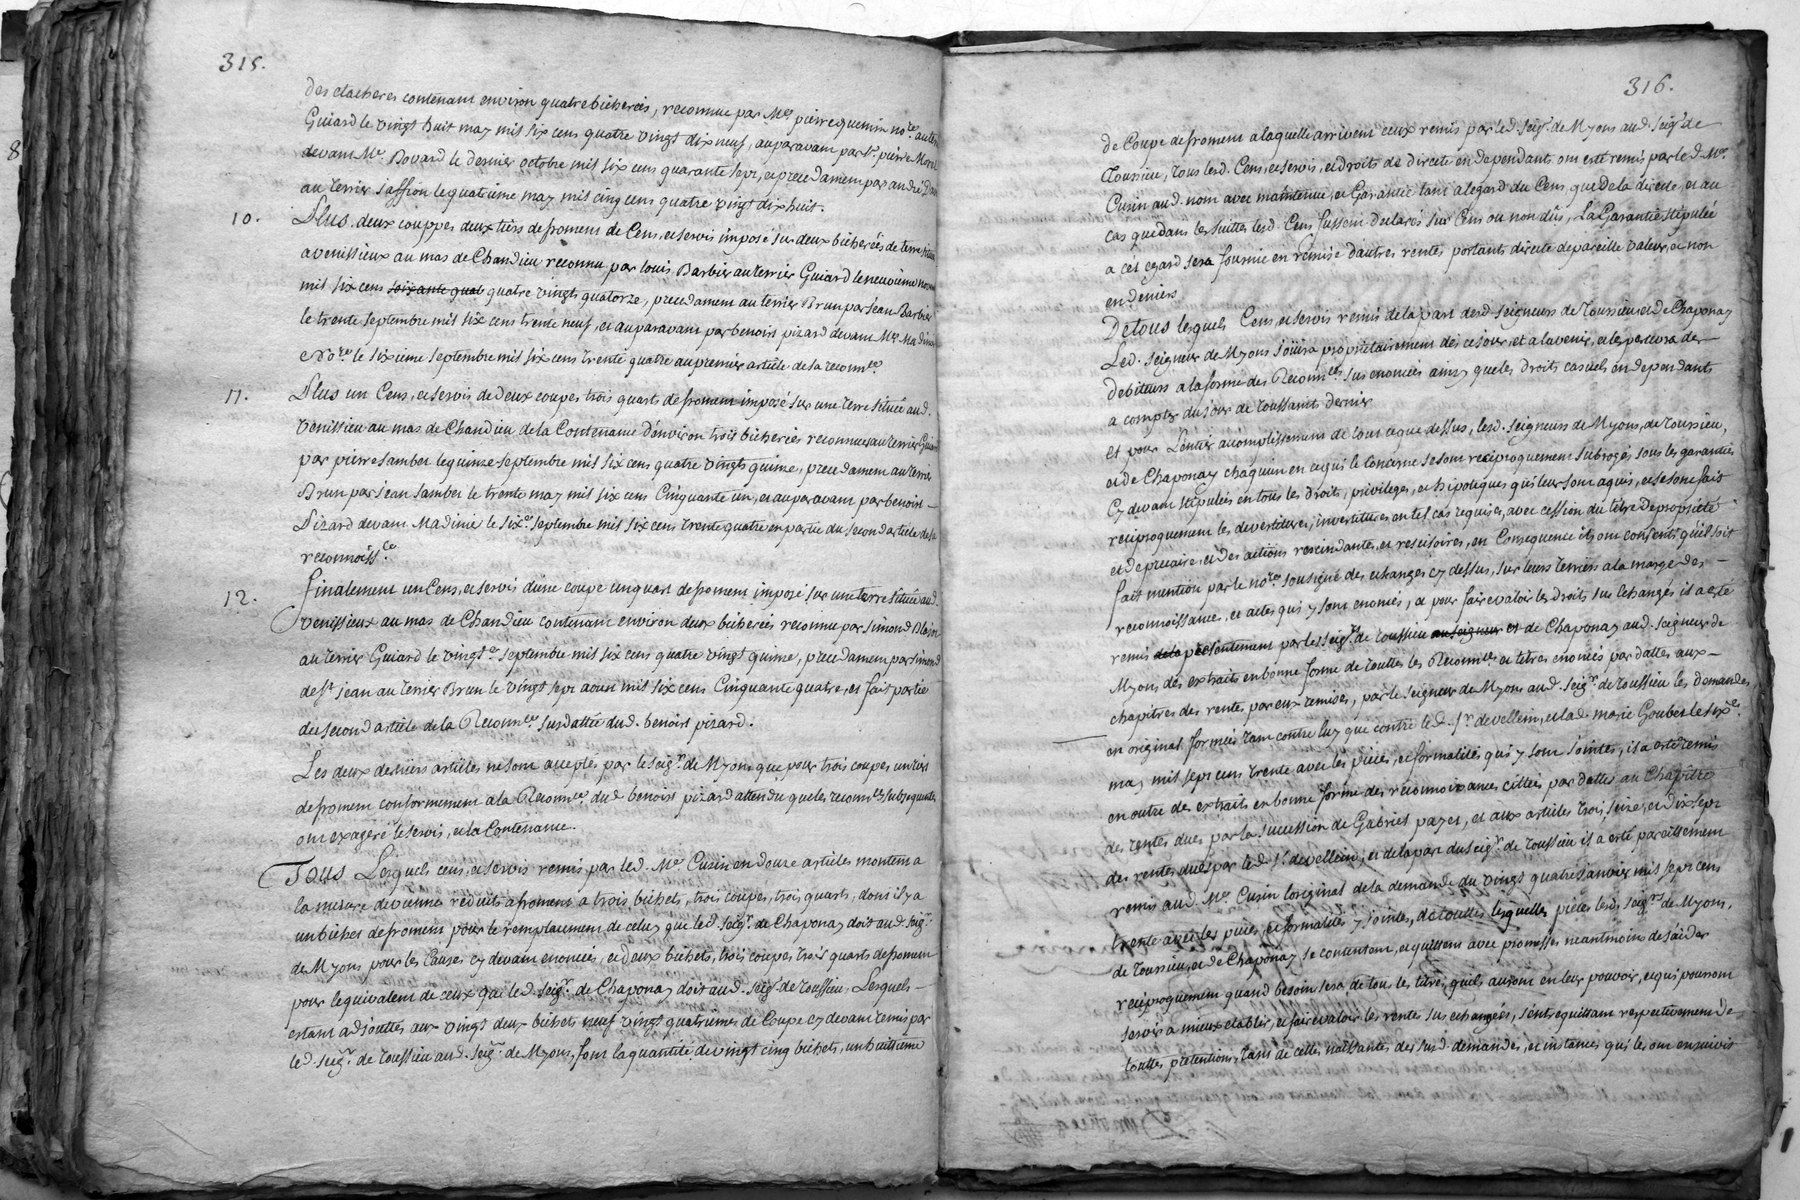 315.
des clacheres contenant environ quatre bicherées, reconnue par Me pierre quemin nore au terrier
Guiard le vingt huit may mil six cens quatre vingt dix neuf, auparavant par Sr pierre Morel
devant Me Bovard le dernier octobre mil six cens quarante sept, et precedament par andré
au terrier Saffion le quatrieme may mil cinq cens quatre vingt dix huit.
10. Plus deux couppes deux tiers de froment de Cens, et servis imposé sur deux bicherées de terre située
a venissieux au mas de Chandieu reconnu par louis Barbier au terrier Guiard le neuvieme novem
mil six cens soixante quat quatre vingts quatorze, precedament au terrier Brun par jean Barbier
le trente septembre mil six cens trente neuf, et auparavant par benoist pizard devant Me Madinie
Nore le sixieme septembre mil six cens trente quatre au premier article de sa reconnce
11. Plus un Cens, et servis de Deux coupes trois quarts de froment imposé sur une terre située aud.
Venissieu au mas de Chandieu de la Contenance d'environ trois bicherées reconnue au terrier Guiard
par pierre Jambet le quinze septembre mil six cens quatre vingts quinze, precedament au terrier
Brun par jean Jambet le trente may mil six cens Cinquante un, et auparavant par benoist
Pizard devant Madinie le sixe septembre mil six cens trente quatre en partie du second article de sa
reconnoissce
12. Finalement un Cens, et servis d'une coupe un quart de froment imposé sur une terre située aud.
venissieux au mas de Chandieu contenant environ deux bicherées reconnu par simond
au terrier Guiard le vingte septembre mil six cens quatre vingt quinze, precedament par simond
de st jean au terrier Brun le vingt sept aoust mil six cens Cinquante quatre, et fait partie
du second article de la Reconnce susdattée dud. benoist pizard.
Les deux derniers articles ne sont acceptés par le seigr de Myons que pour trois coupes un tiers
de froment conformement a la Reconnce dud benoist pizard attendu que les reconnces subsequentes
ont exageré le servis, et la Contenance.
Tous Lesquels cens, et servis remis par led. Me Cuzin en douze articles montent a
la mesure de vienne reduits a froment a trois bichets, trois coupes, trois quarts, dont il y a
un bichet de froment pour le remplacement de celuy que led seigr de Chaponay doit aud. seigr
de Myons pour les Causes cy devant enoncées, et deux bichets, trois coupes, trois quarts de froment
pour l'equivalent de ceux que led. seigr de Chaponay doit aud. seigr de toussieu, Lesquels
estant adjouttés aux vingt deux bichets neuf vingt quatriemes de Coupe cy devant remis par
led. seigr de toussieu aud. seigr de Myons, font la quantité de vingt cinq bichets, un huitieme
316.
de Coupe de froment a laquelle arrivent ceux remis par led. seigr de Myons aud. seigr de
toussieu, tous lesd. Cens, et servis, et droits de directe en dependants ont esté remis par led. Me
Cuzin aud. nom avec maintenue, et Garantie tant a legard du Cens, que de la directe, et au
cas que dans les suittes lesd. Cens fussent declarés sur Cens ou non dûs, La Garantie stipulée
a cet egard sera fournie en remise d'autres rentes portants directe de pareille valeur, et non
en deniers
De tous lesquels Cens, et servis remis de la part desd seigneurs de toussieu, et de Chaponay
Led. seigneur de Myons joüira proprietairement dés ce jour, et a lavenir, et les percevra des
debiteurs a la forme des Reconnces sus enoncées ainsy que les droits casuels en dependants
a compter du jour de toussaint dernier
Et pour L'entier accomplissement de tout ce que dessus, lesd. seigneurs de Myons, de toussieu,
et de Chaponay chaquun en ce qui le Concerne se sont reciproquement subrogés sous les garanties
Cy devant stipulées en tous les droits, privileges, et hipoteques qui leur sont aquis, et se sont fait
reciproquement les devestitures, investitures en tel cas requises, avec cession du titre de proprieté
et de precaire, et des actions rescindantes, et rescisoires, en Consequence ils ont consenti qu'il soit
fait mention par le nore sousigné des echanges cy dessus, sur leurs terriers a la marge des
reconnoissance, et actes qui y sont enoncés, et pour faire valoir les droits sus échangés il a esté
remis presentement par les seigrs de toussieu et de Chaponay aud. seigneur de
Myons des extraits en bonne forme de touttes les Reconnces et titres enoncés par dattes aux
chapitres des rentes par eux remises, par le seigneur de Myons aud. seigr de toussieu les demandes
en original formées tant contre luy que contre led. Sr de vellein, et lad. marie Goubet le sixe
may mil sept cens trente avec les pieces, et formalités qui y sont jointes, il a esté remis
en outre des extraits en bonne forme des reconnoissances cittées par dattes au Chapitre
des rentes dues par la succession de Gabriel payet, et aux articles trois, seize, et dix sept
des rentes dues par led. Sr de vellein, et de la part du seigr de toussieu il a esté pareillement
remis aud. Me Cuzin l'original de la demande du vingt quatre janvier mil sept cens
trente avec les pieces, et formalités y jointes, de touttes lesquelles pieces lesd. seigrs de Myons,
de toussieu, et de Chaponay se contentent, et quittent avec promesses neantmoins de s'aider
reciproquement quand besoin sera de tou les titres qu'ils auront en leur pouvoir, et qui pourront
servir a mieux etablir, et faire valoir les rentes sus echangées, s'entrequittant respectivement de
touttes pretentions, tans de celles naissantes des susd. demandes, et instances qui les ont ensuivis